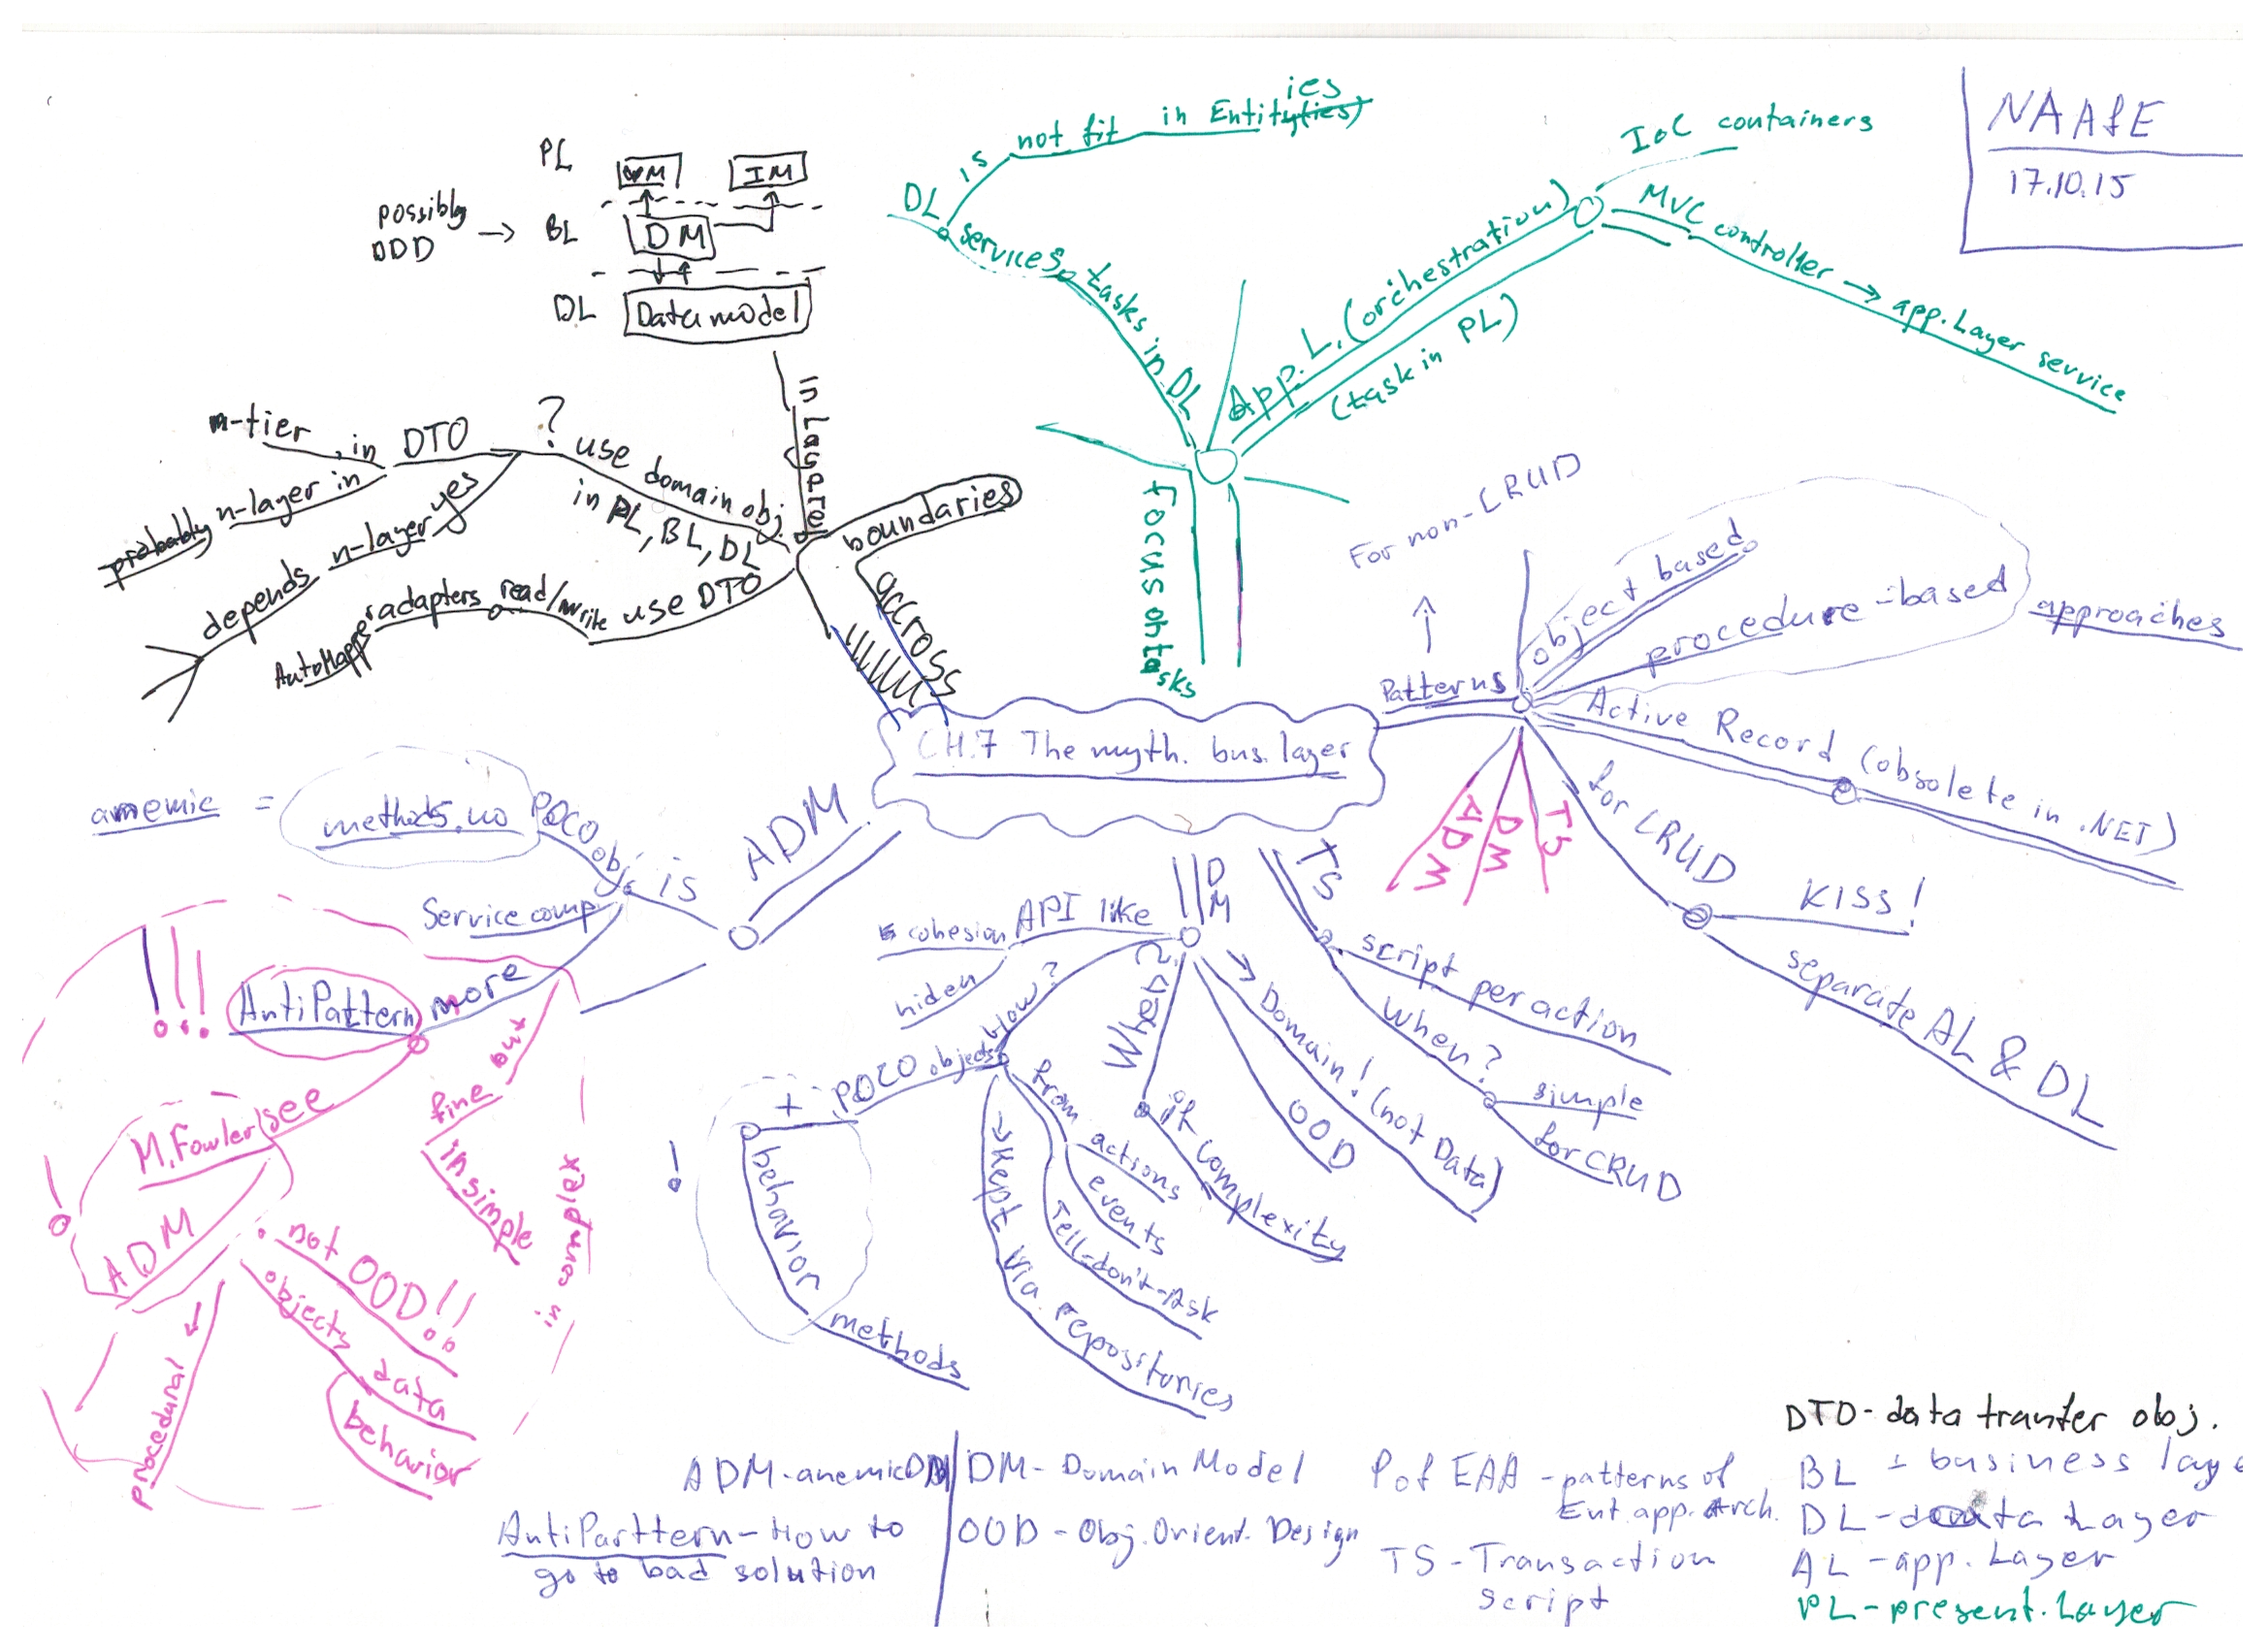 NAAfE
17.10.15
PL
VM
IM
possibly
DDD → BL
DM
DL
Data model
in Laspre
boundaries
accross
? use domain obj.
in PL, BL, DL
DTO
in m-tier
probably n-layer in
yes
n-layer
depends
use DTO
read/write
adapters
AutoMapper
DL
is
not fit in Entityties)
ies
services
tasks in DL
App. L. (orchestration)
(task in PL)
IoC containers
MVC controller → app. Layer service
Focus on tasks
CH.7 The myth. bus. layer
Patterns
For non-CRUD
object based
procedure-based
approaches
Active Record (obsolete in .NET)
for CRUD
KISS!
separate AL & DL
TS
DM
ADM
TS
script per action
When?
simple
for CRUD
DM
API like
cohesion
hiden
How?
POCO objects
+
behavior
methods
!
from actions
events
Tell-don't-Ask
→ kept via repositories
Why?
if complexity
OOD
→ Domain! (not Data)
ADM
is
POCO obj
methods no
anemic =
Service comp
more
AntiPattern
!!!
see
M. Fowler
ADM
!
not OOD!!
objects data
behavior
→ procedural
but
fine
in simple
in complex
ADM-anemic DM
AntiParttern-How to
go to bad solution
DM-Domain Model
OOD-Obj. Orient. Design
P of EAA-patterns of
Ent. app. Arch.
TS-Transaction
script
DTO-data tranfer obj.
BL - business laye
DL-data Layer
AL-app. Layer
PL-present. Layer